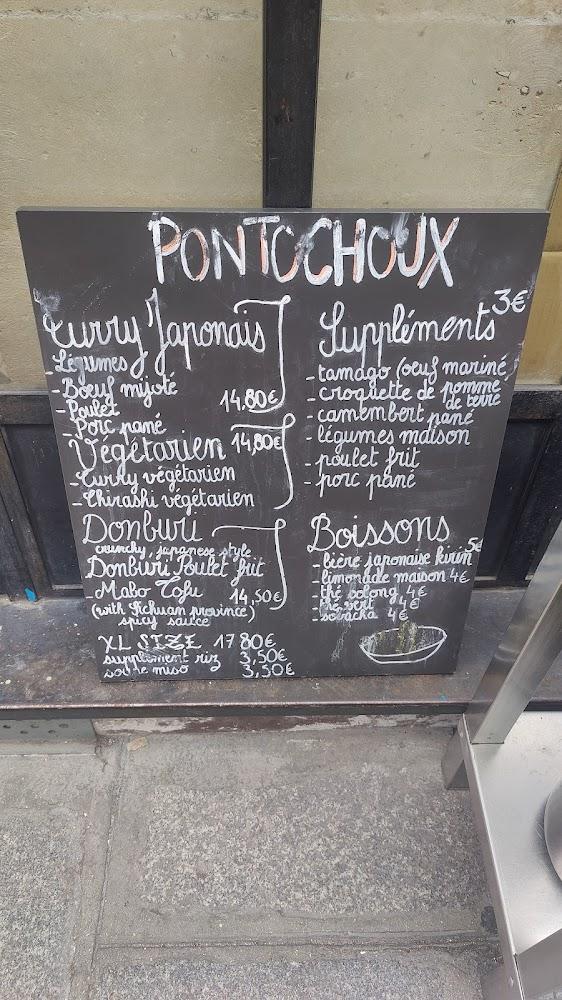 PONTOCHOUX
Curry Japonais
- Légumes
- Boeuf mijoté
- Poulet
- Porc pané
14,80€
Végétarien 14,80€
- Curry végétarien
- Chirashi végétarien
Donburi
crunchy, japanese style
Donburi Poulet frit
- Mabo Tofu 14,50€
(with Sichuan province)
spicy sauce
XL SIZE 17 80€
supplément riz 3,50€
soupe miso 3,50€
Suppléments 3€
- tamago (oeuf mariné)
- croquette de pomme
de terre
- camembert pané
- légumes maison
- poulet frit
- porc pané
Boissons
- bière japonaise kirin 5€
- limonade maison 4€
- thé oolong 4€
- thé vert 4€
- sobacha 4€